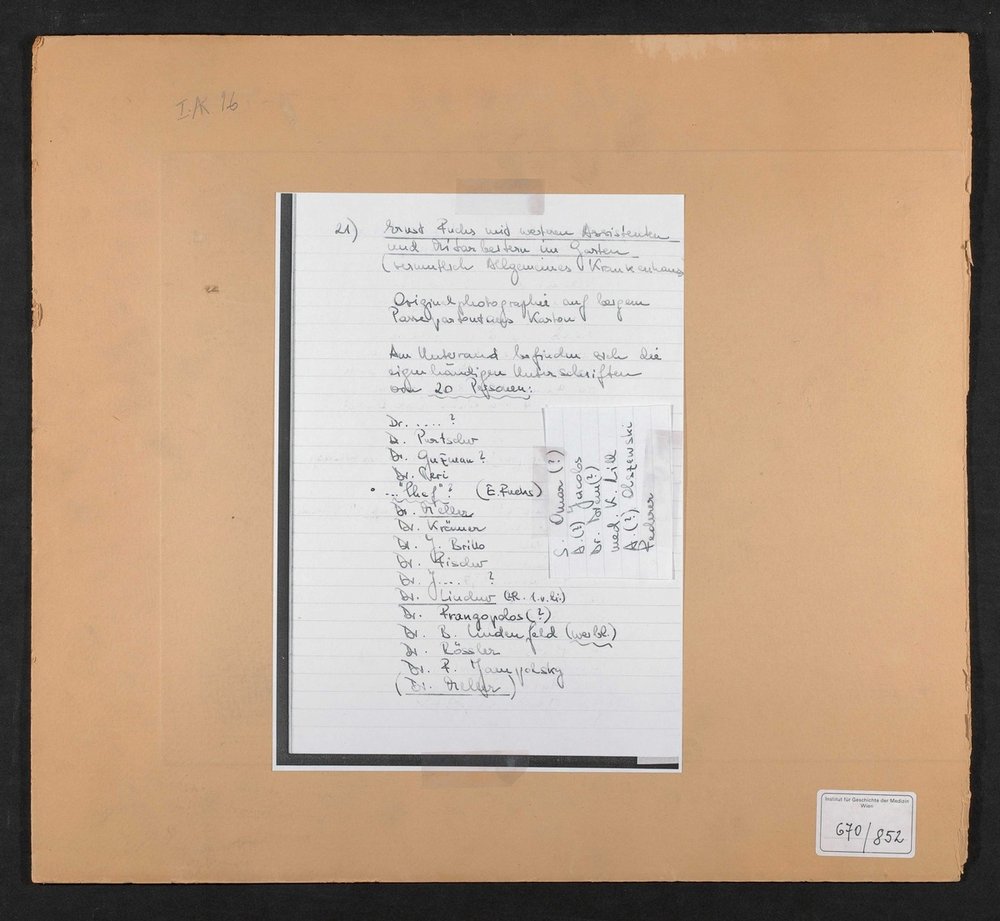 I. AK 96
21) Ernst Fuchs mit weiteren Assistenten
und Mitarbeitern im Garten
(vermutlich Allgemeines Krankenhaus
Originalphotographie auf beigem
Karton
Am Unterrand befinden sich die
eigenhändigen Unterschriften
von 20 Personen:
Dr. ..... ?
Dr. Purtscher
Dr. Guzman ?
Dr.
... "Chef" ? (E. Fuchs)
Dr. Meller
Dr. Krämer
Dr. J. Brillo
Dr. Fischer
Dr. J.... ?
Dr. Lindner (2R. 1.v.li.)
Dr. Frangopolos (?)
Dr. B. Lindenfeld (weibl.)
Dr. Rössler
Dr. F. Jampolsky
(Dr. Meller)
S. Omar (?)
D. (?) Jacobs
Dr. (?)
med. K. Lill
A (?) Olszewski
Federer
Institut für Geschichte der Medizin
Wien
670/852